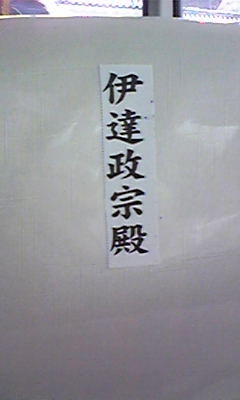 伊達政宗殿